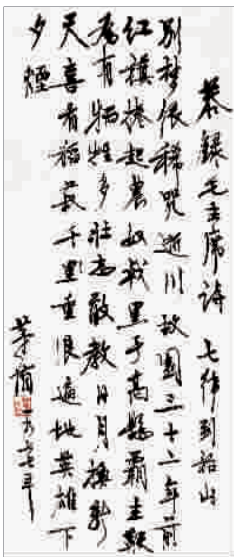 恭録毛主席詩 七律到韶山
别梦依稀咒逝川故園三十二年前
红旗捲起農奴戟黑手高懸霸主鞭
為有犧牲多壮志敢教日月换新
天喜看稻菽千里重浪遍地英雄下
夕煙